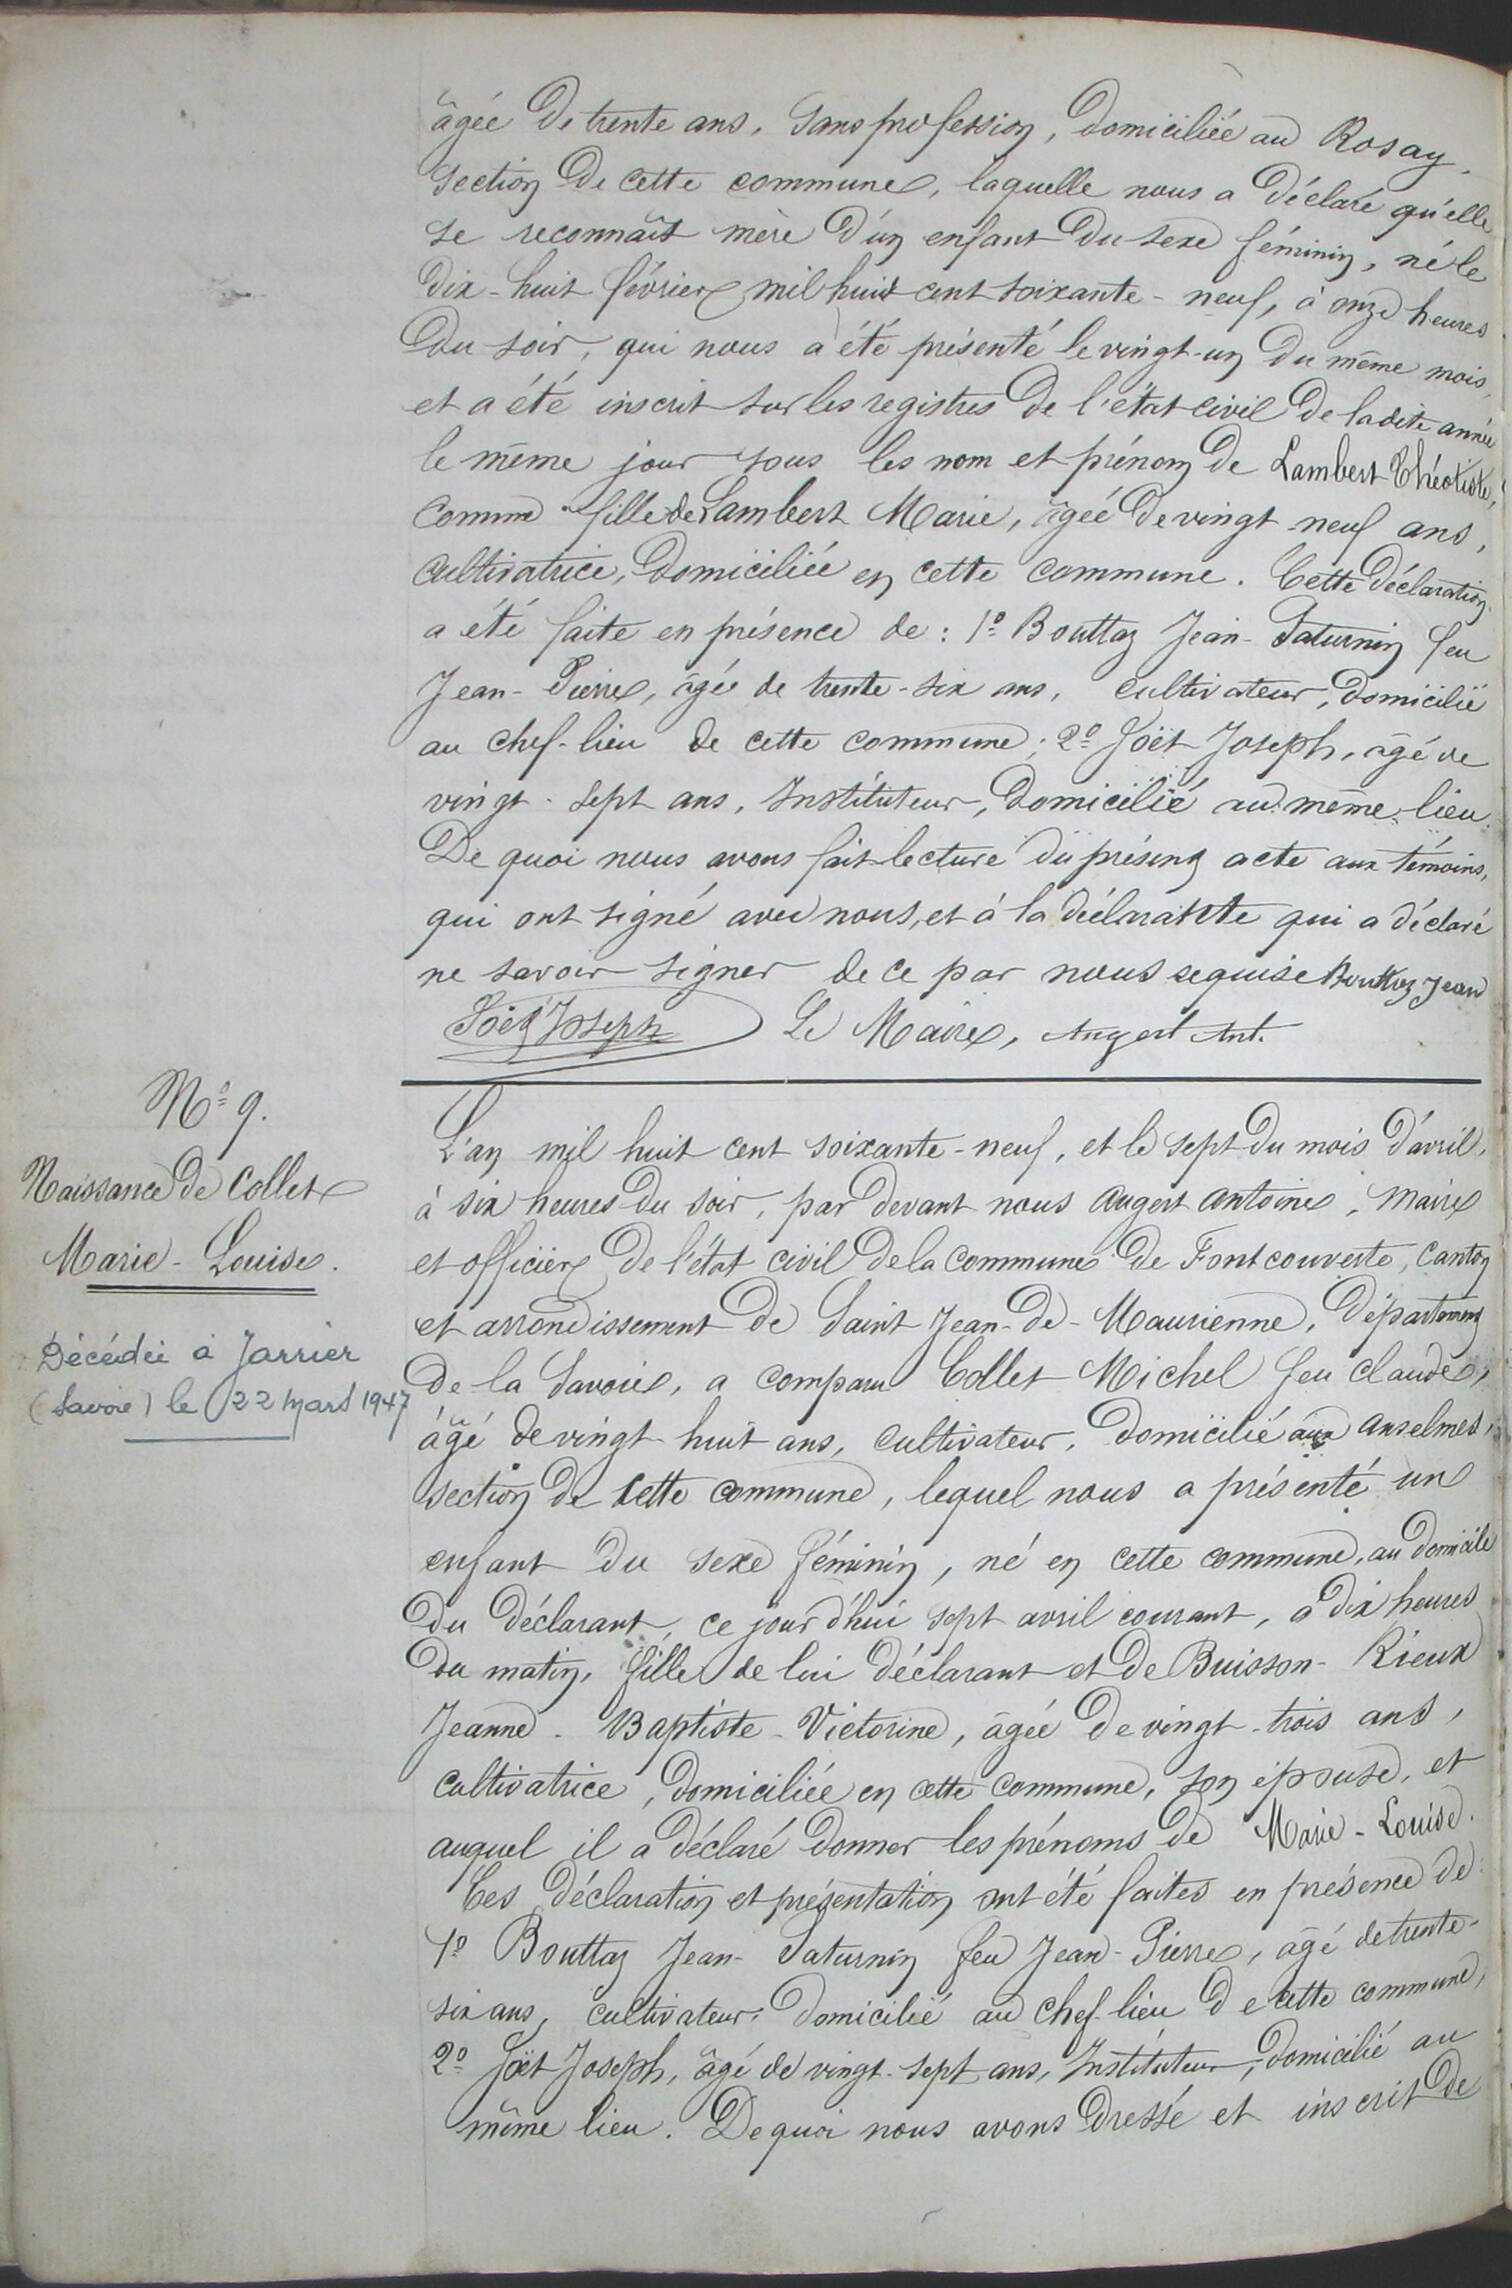 âgée de trente ans, Sans profession, domiciliée au Rosay,
section de cette commune, laquelle nous a déclaré qu'elle
se reconnaît mère d'un enfant du sexe féminin, né le
dix-huit février mil huit cent soixante-neuf, à onze heures
du soir, qui nous a été présenté le vingt-un du même mois,
et a été inscrit sur les registres de l'état civil de ladite année
le même jour sous les nom et prénom de Lambert Théotiste,
comme fille de Lambert Marie, âgée de vingt-neuf ans,
cultivatrice, domiciliée en cette commune. Cette déclaration
a été faite en présence de : 1º Bouttaz Jean-Saturnin feu
Jean-Pierre, âgée de trente-six ans, cultivateur, domicilié
au chef-lieu de cette commune; 2º Joët Joseph, âgé de
vingt-sept ans, Instituteur, domicilié au même lieu.
De quoi nous avons fait lecture du présent acte aux témoins,
qui ont signé avec nous, et à la déclarante qui a déclaré
ne savoir signer de ce par nous requise Bouttaz Jean
Joët Joseph Le Maire, Augert Ant.
Nº 9.
Naissance de Collet
Marie-Louise.
Décédée à Jarrier
(Savoie) le 22 mars 1947
L'an mil huit cent soixante-neuf, et le sept du mois d'avril,
à six heures du soir, par devant nous Augert Antoine, Maire
et officier de l'état civil de la commune de Fontcouverte, Canton
et arrondissement de Saint Jean-de-Maurienne, Département
de la Savoie, a comparu Collet Michel feu Claude,
âgé de vingt huit ans, cultivateur, domicilié aux Anselmes,
section de cette commune, lequel nous a présenté un
enfant du sexe féminin, né en cette commune, au domicile
du déclarant, ce jourd'hui sept avril courant, à dix heures
du matin, fille de lui déclarant et de Buisson-Rieux
Jeanne-Baptiste-Victorine, âgée de vingt-trois ans,
cultivatrice, domiciliée en cette commune, son épouse, et
auquel il a déclaré donner les prénoms de Marie-Louise.
Ces déclaration et présentation ont été faites en présence de :
1º Bouttaz Jean-Saturnin feu Jean-Pierre, âgé de trente-
six ans, cultivateur, domicilié au chef-lieu de cette commune,
2º Joët Joseph, âgé de vingt-sept ans, Instituteur, domicilié au
même lieu. De quoi nous avons dressé et inscrit de